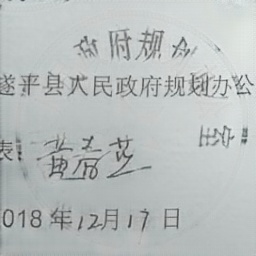 政府规划
遂平县人民政府规划办公
室
表：黄春芝
2018年12月17日